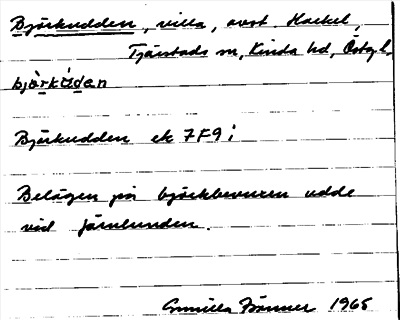 Björkudden, villa, avst. Hackel,
Tjärstads sn, Kinda hd, Östg. l.
björkùden
Björkudden ek 7F9i
Belägen på björkbevuxen udde
vid Järnlunden.
Gunilla 1965